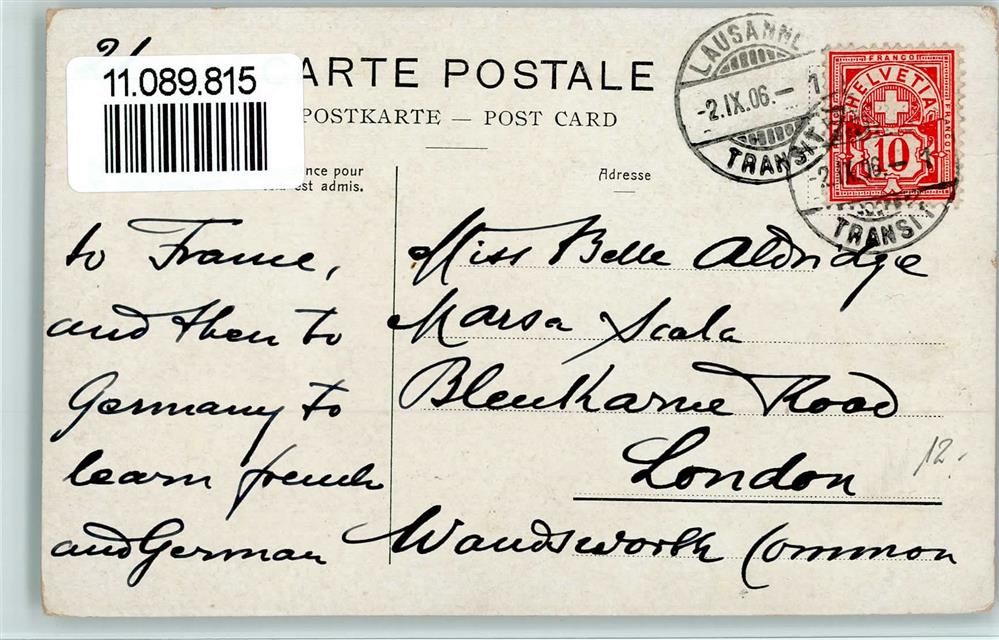 11.089.815
ARTE POSTALE
POSTKARTE — POST CARD
nce pour
est admis.
Adresse
LAUSANNE
-2.IX.06.-
TRANSIT
FRANCO
HELVETIA
FRANCO
10
TRANSIT
to France,
and then to
Germany to
learn french
and German
Miss Belle Aldridge
Marsa Scala
Blenkarne Road
London
Wandsworth Common
12.